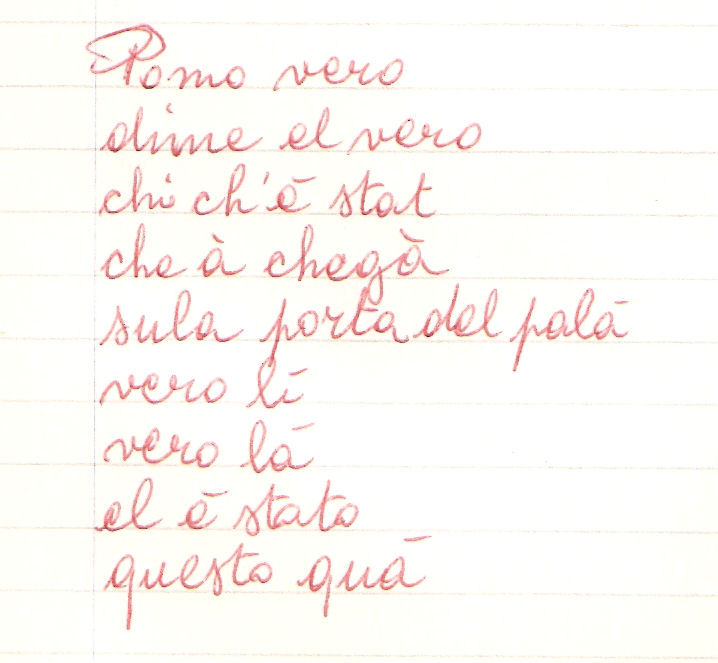 Pomo vero
dime el vero
chi ch'é stat
che à chegà
sula porta del palá
vero lí
vero lá
el é stato
questo quá